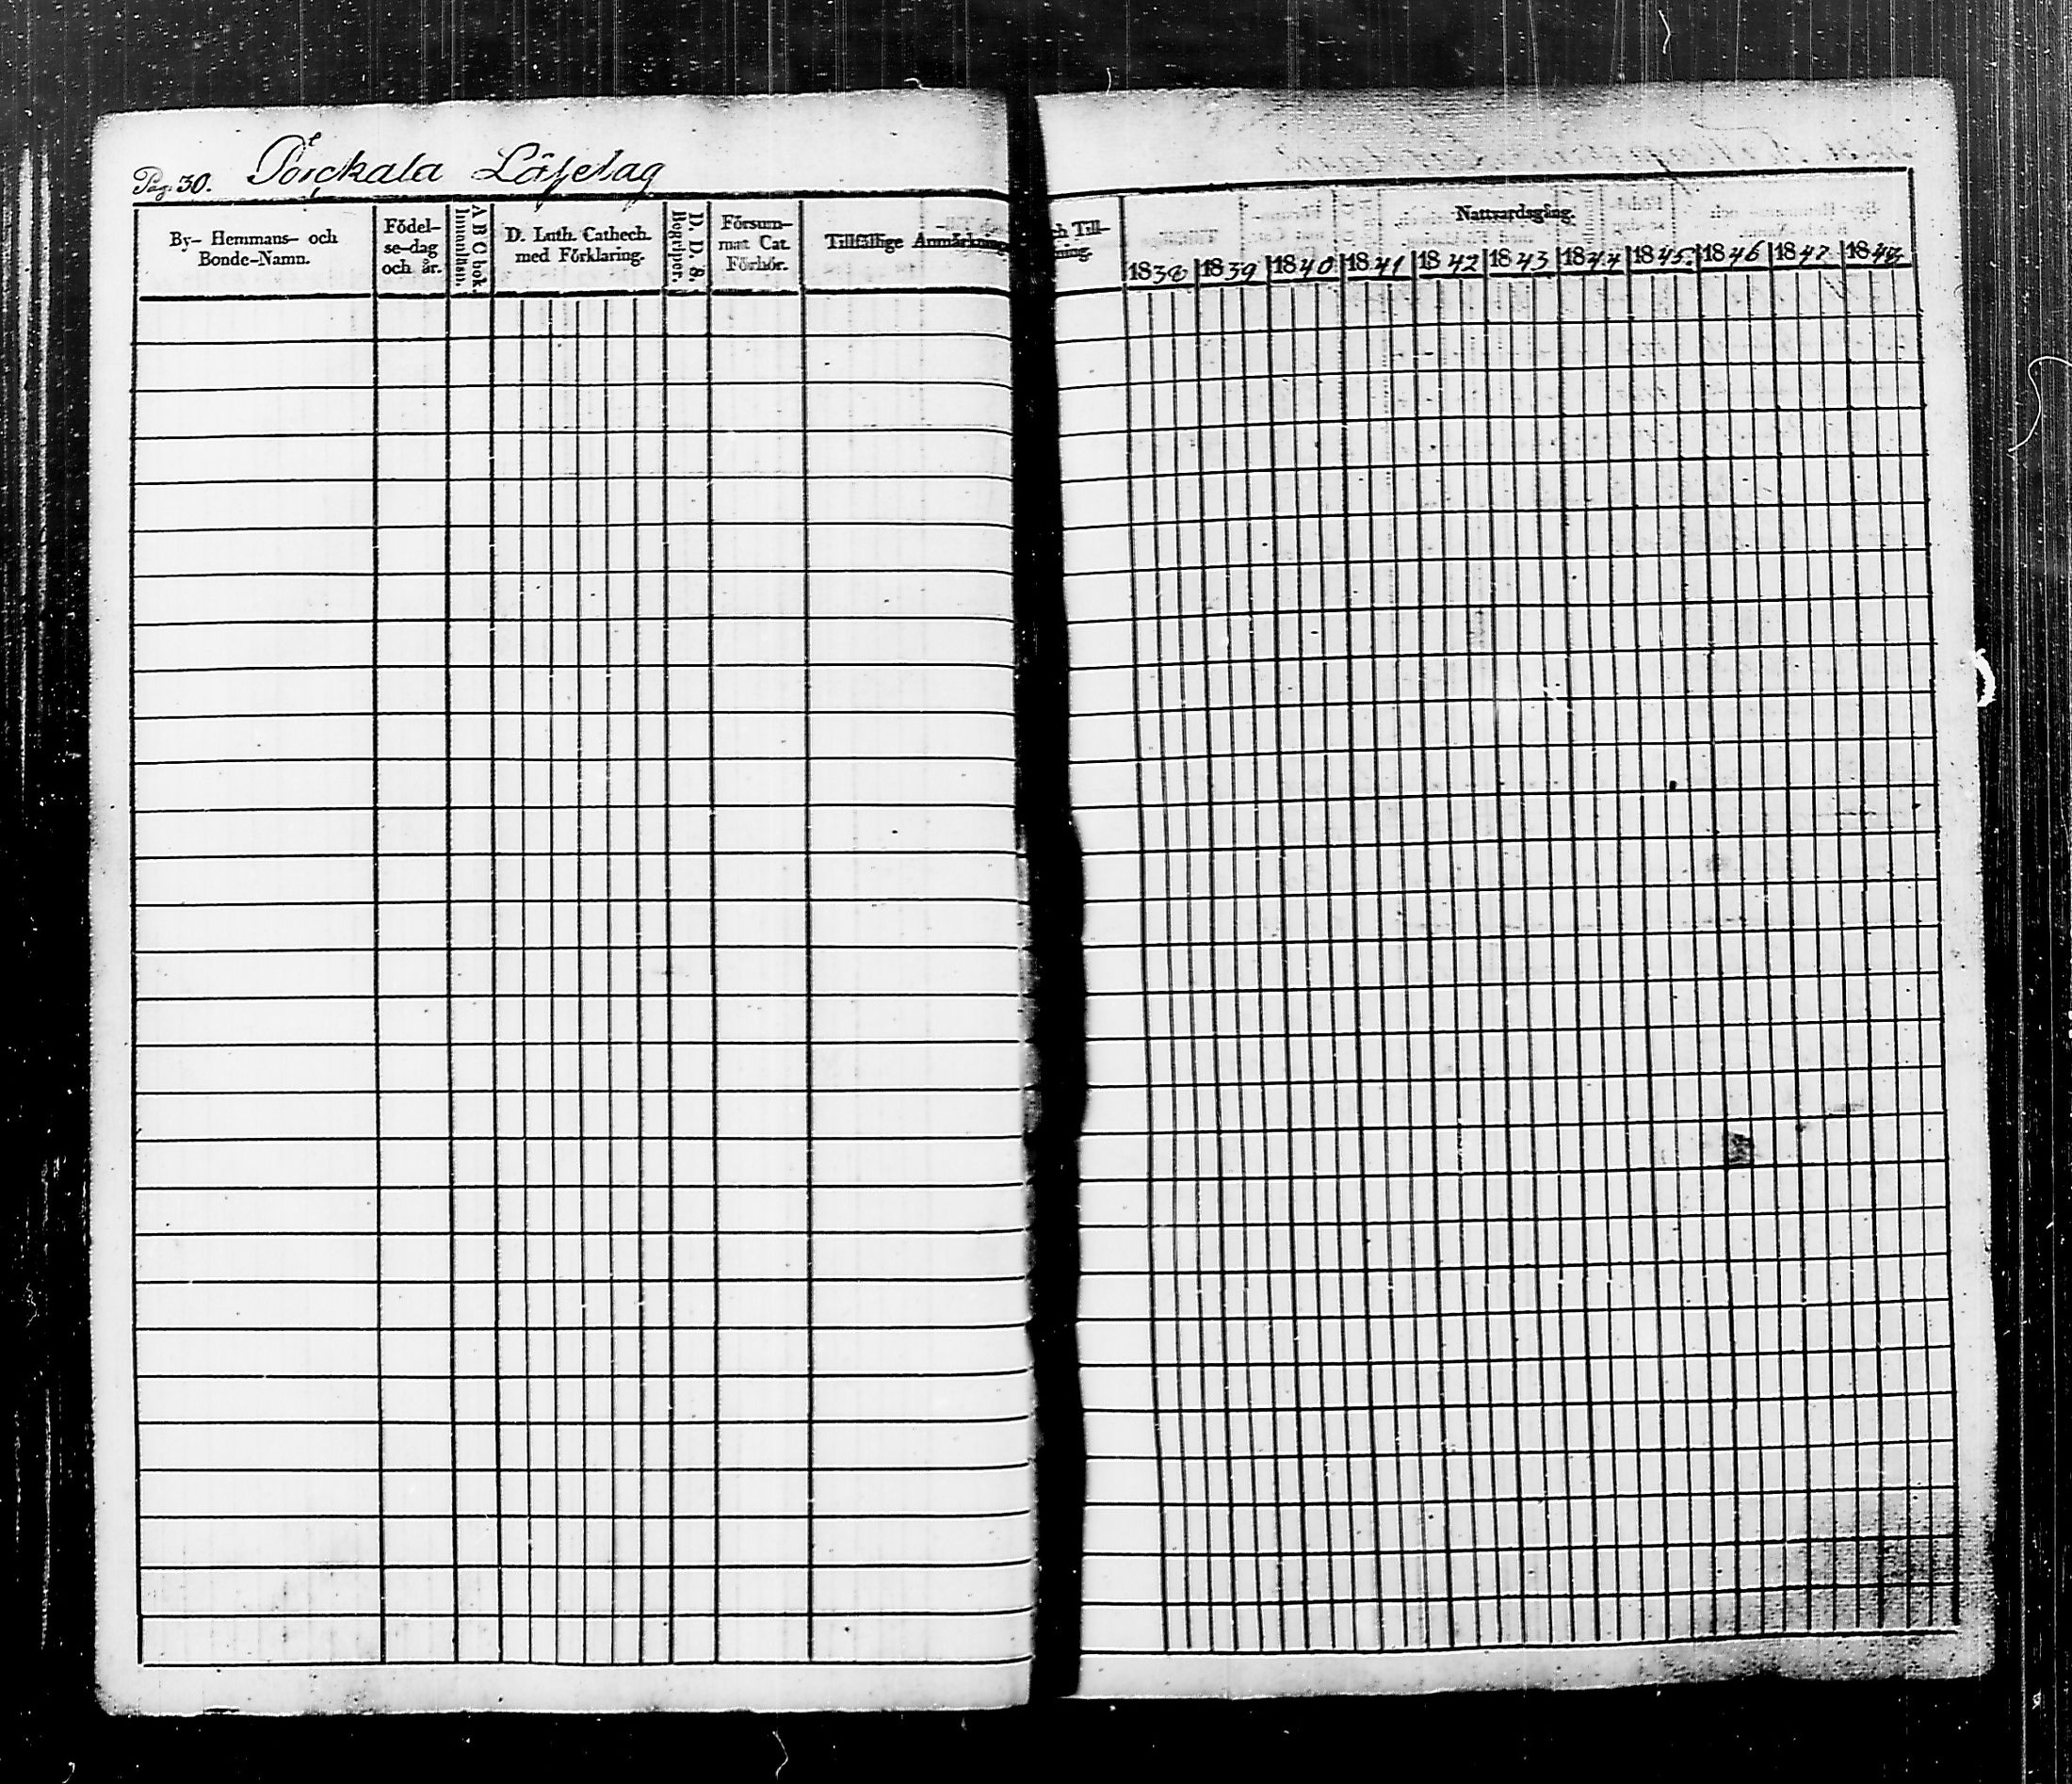 Pag. 30. Pörckala Läselag
By- Hemmans- och Bonde-Namn.
Födel-se-dag och år.
A B C bok. Innanläsn.
D. Luth. Cathech. med Förklaring.
D. D. S. Begriper.
Försum-mat Cat. Förhör.
Tillfällige Anmärkning
ch Till-
ning.
Nattvardsgång.
1838 1839 1840 1841 1842 1843 1844 1845 1846 1847